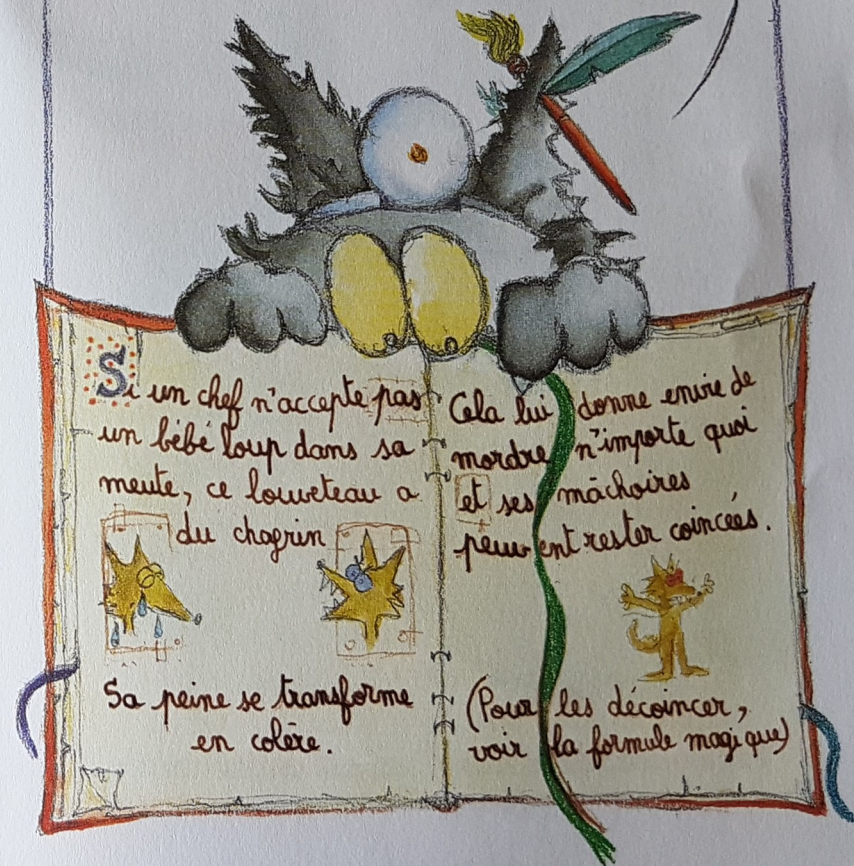 Si un chef n'accepte pas
un bébé loup dans sa
meute, ce louveteau a
du chagrin
Sa peine se transforme
en colère.
Cela lui donne envie de
mordre n'importe quoi
et ses mâchoires
peuvent rester coincées.
(Pour les décoincer,
voir la formule magique)